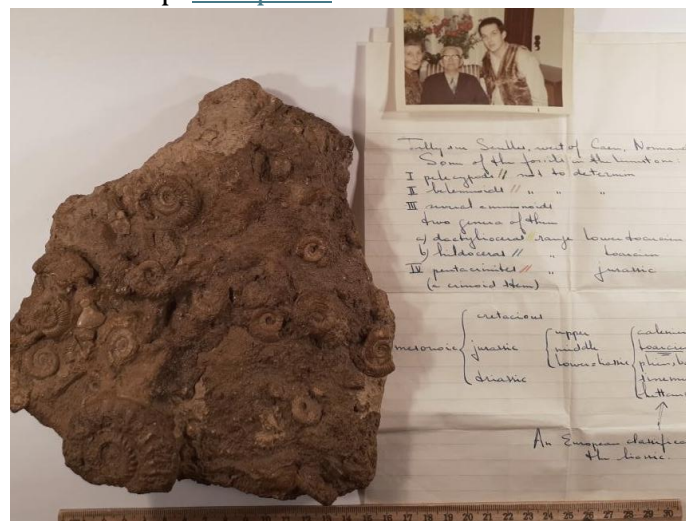 Tilly sur Seulles, west of Caen, Norman
Some of the fossils in the limestone:
I pelecypods // not to determin
II belemnoids // " " "
III several ammonoids
two genera of them
a) dactylioceras/ range lower toarcian
b) hildoceras // " toarcian
IV pentacrinites // " jurassic
(a crinoid stem)
cretacious
mesozoic jurassic
triassic
upper
middle
lower=liassic
toarcia
An European classifica
the liassic.
12 13 14 15 16 17 18 19 20 21 22 23 24 25 26 27 28 29 30